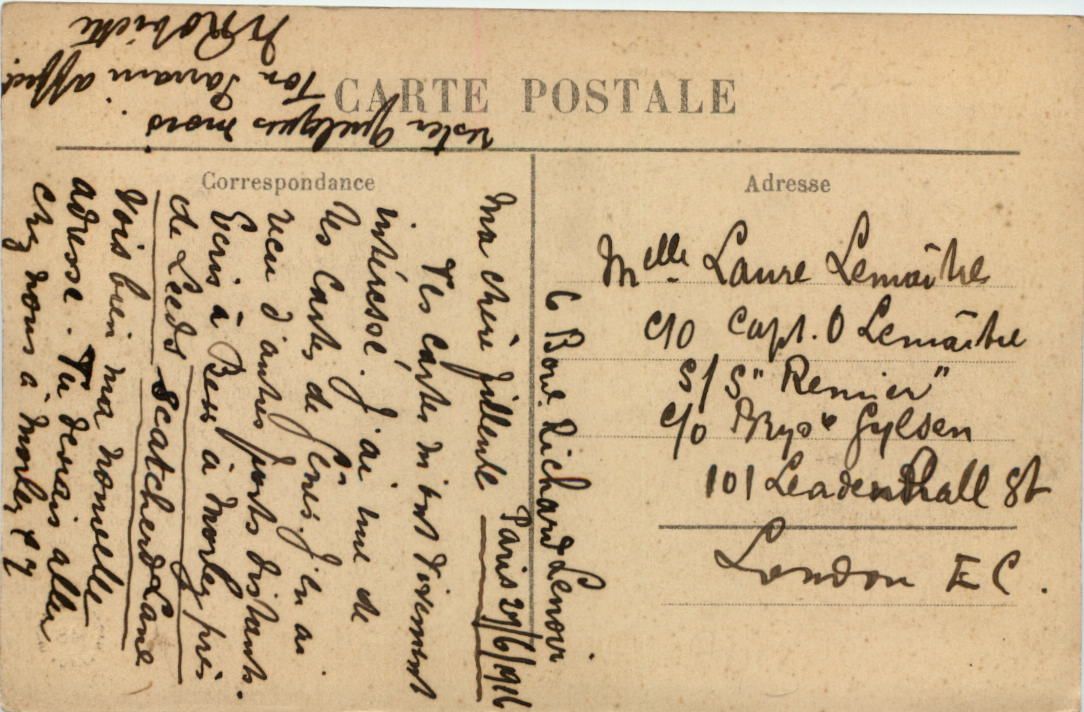 CARTE POSTALE
Correspondance
Adresse
6 Boul. Richard Lenoir
Paris 27/6/1916
Ma chère fillente
Tes cartes m'ont vivement
intéressé. J'ai une de
tes cartes de Gênes. J'en ai
reçu d'autres ports distants.
Ecris à Bess à Morley près
de Leeds Scatcherd Lane
Vois bien ma nouvelle
adresse. Tu devrais aller
chez nous à Morley & y
rester quelques mois
Ton Parrain affect.
Melle Laure Lemaître
c/o Capt. O Lemaître
s/s "Renier"
c/o Brys & Gylsen
101 Leadenhall St
London EC.